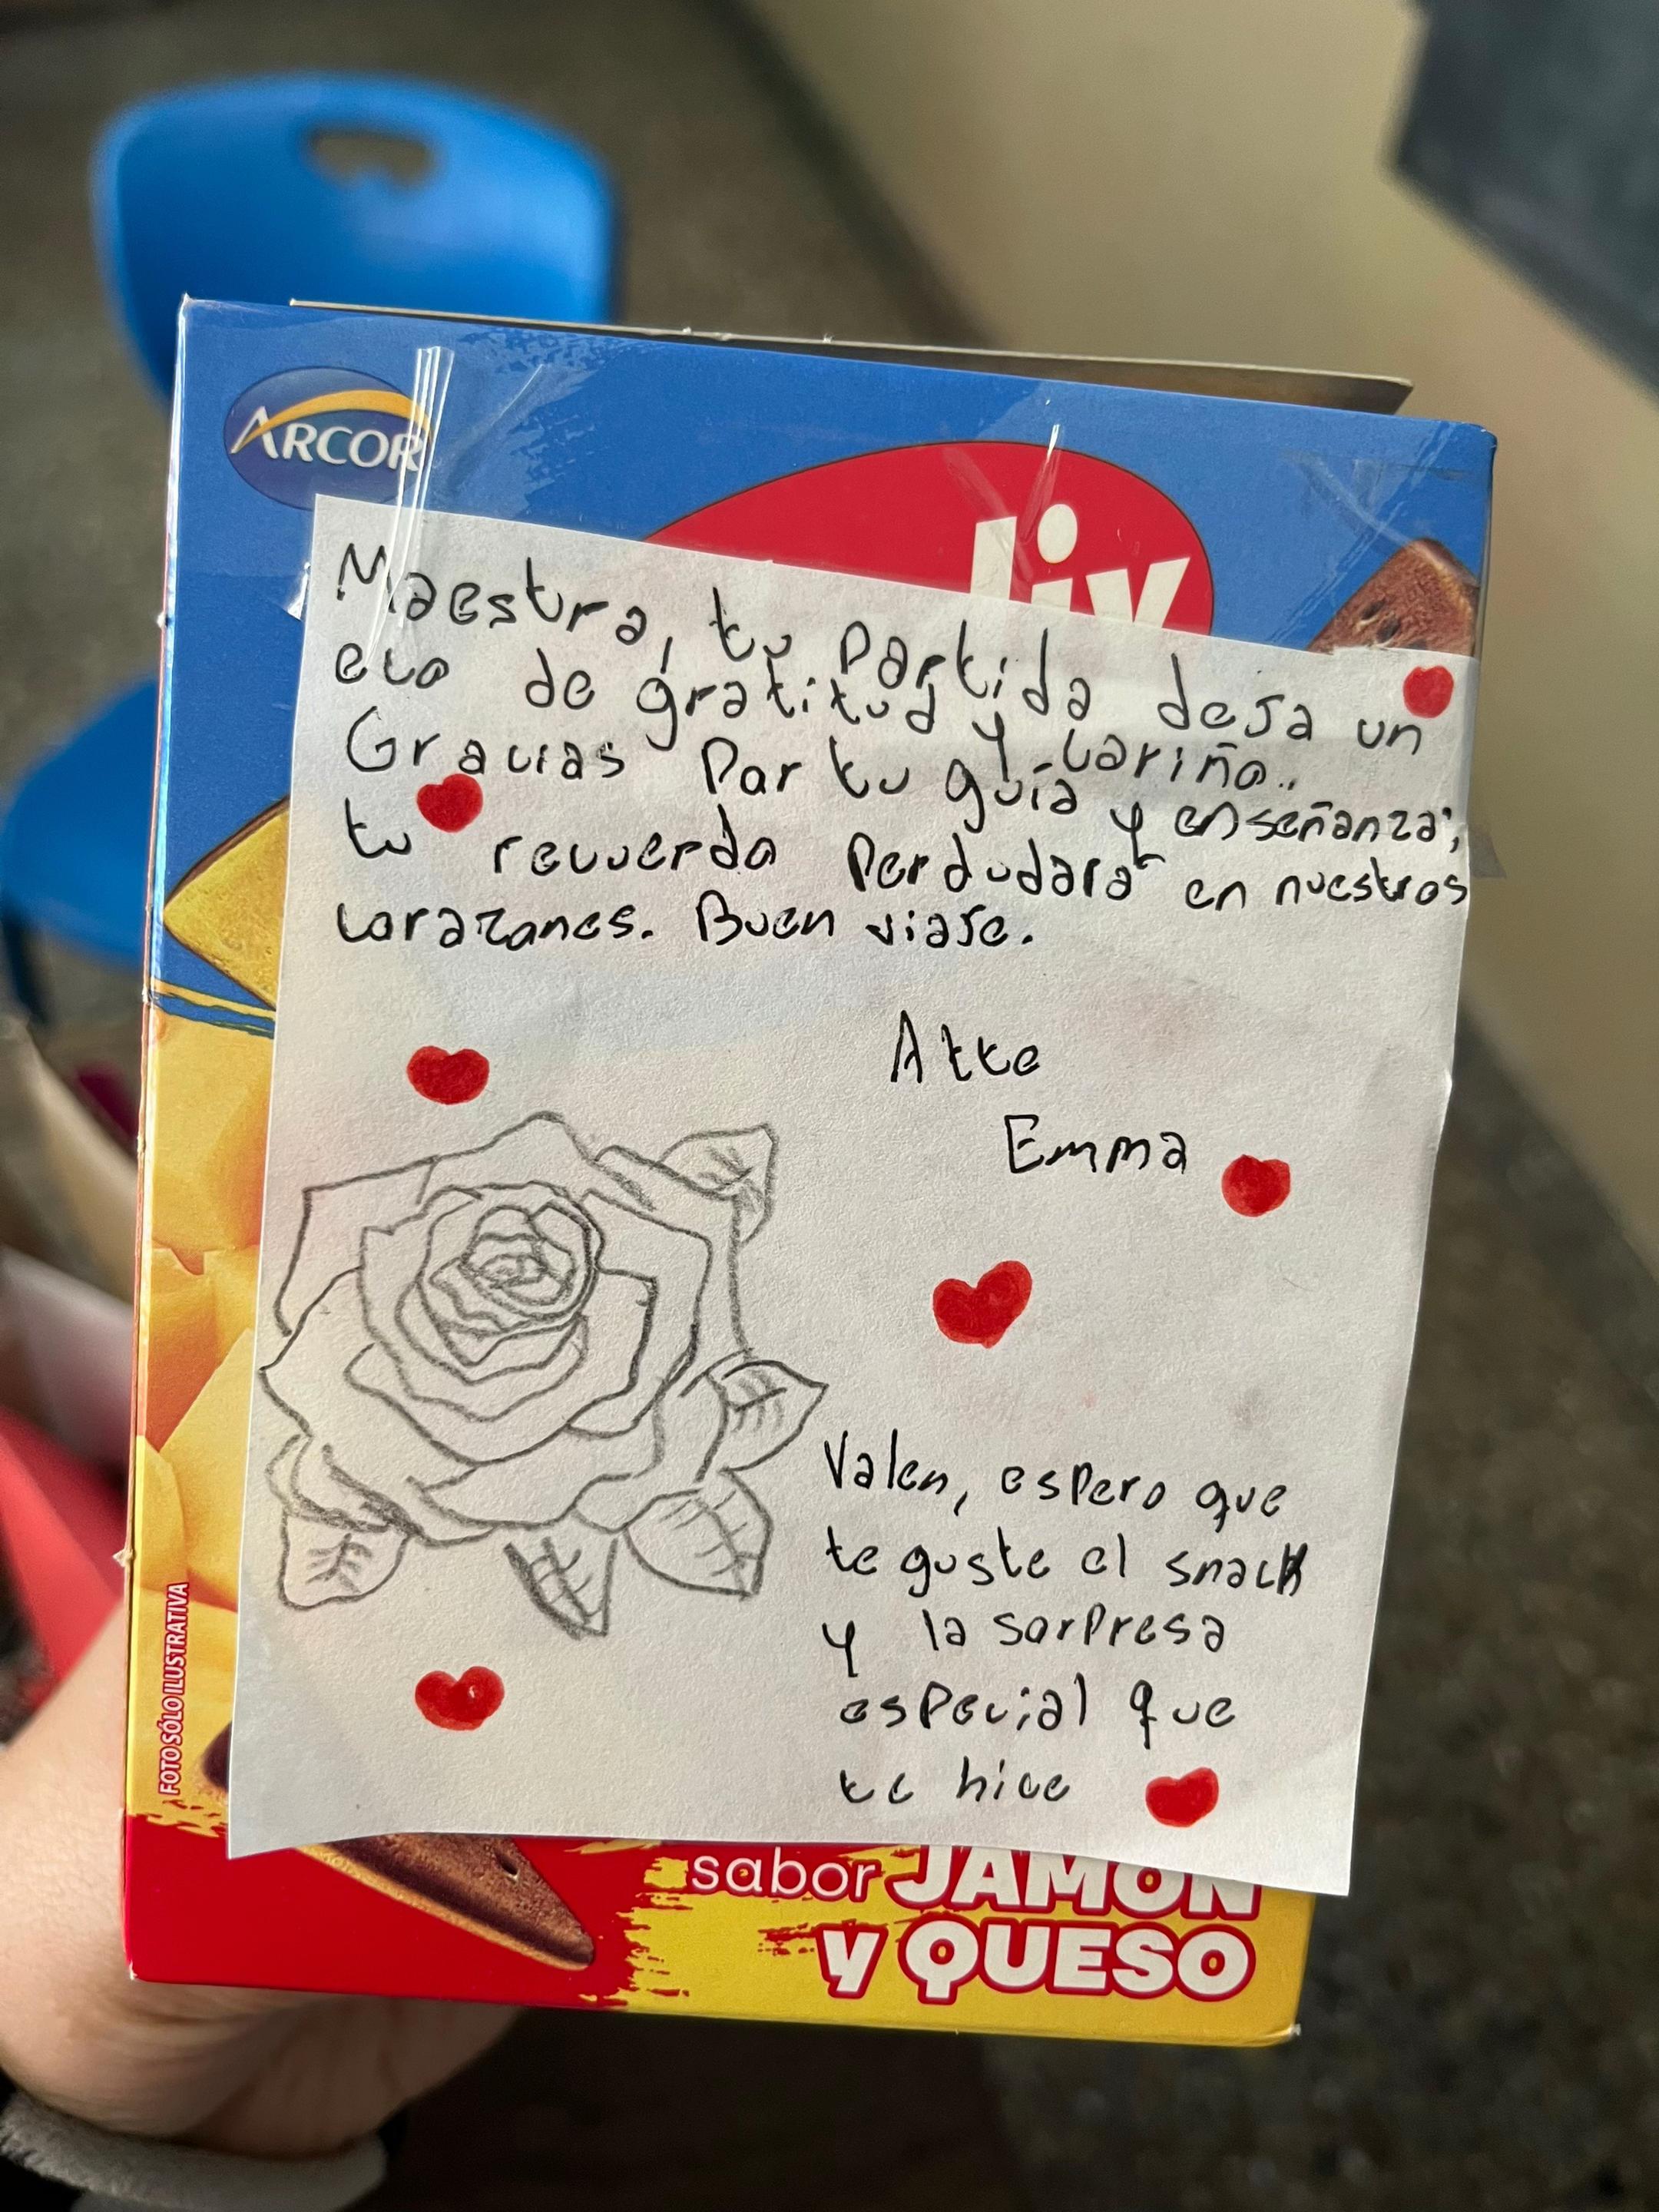 ARCOR
Maestra, tu partida deja un
eco de gratitud y cariño..
Gracias por tu guía y enseñanza;
tu recuerdo perdudará en nuestros
corazones. Buen viaje.
Atte
Emma
Valen, espero que
te guste el snack
y la sorpresa
especial que
te hice
FOTO SÓLO ILUSTRATIVA
sabor JAMÓN
y QUESO